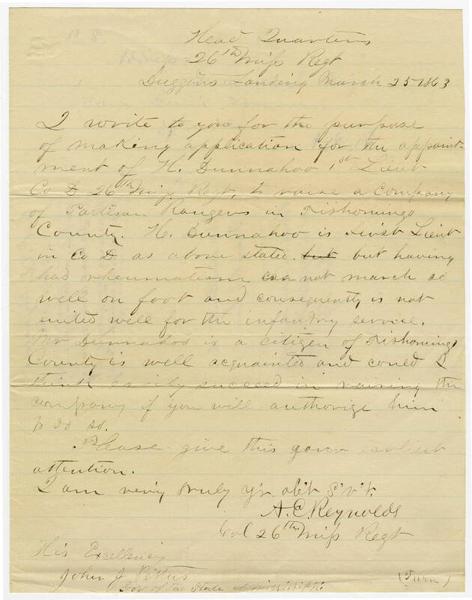 Head Quarters
26th Miss Regt
Duggins Landing March 25 1863
I write to you for the purpose
of making application for the appoint
ment of H. Dunnahoo 1st Lieut
Co D 26th Miss Regt, to raise a Company
of Partisan Rangers in Tishomingo
County. H. Dunnahoo is First Lieut
in Co D as above stated but but having
had rheumatism can not march so
well on foot and consequently is not
suited well for the infantry service.
Mr Dunnahoo is a citizen of Tishomingo
County is well acquainted and could I
think easily succeed in raising the
company if you will authorize him
to do so.
Please give this your earliest
attention.
I am very truly yr obt Svt
A E Reynolds
Col 26th Miss Regt
His Excellency
John J Pettus
Gov of the State Mississippi
(Turn)